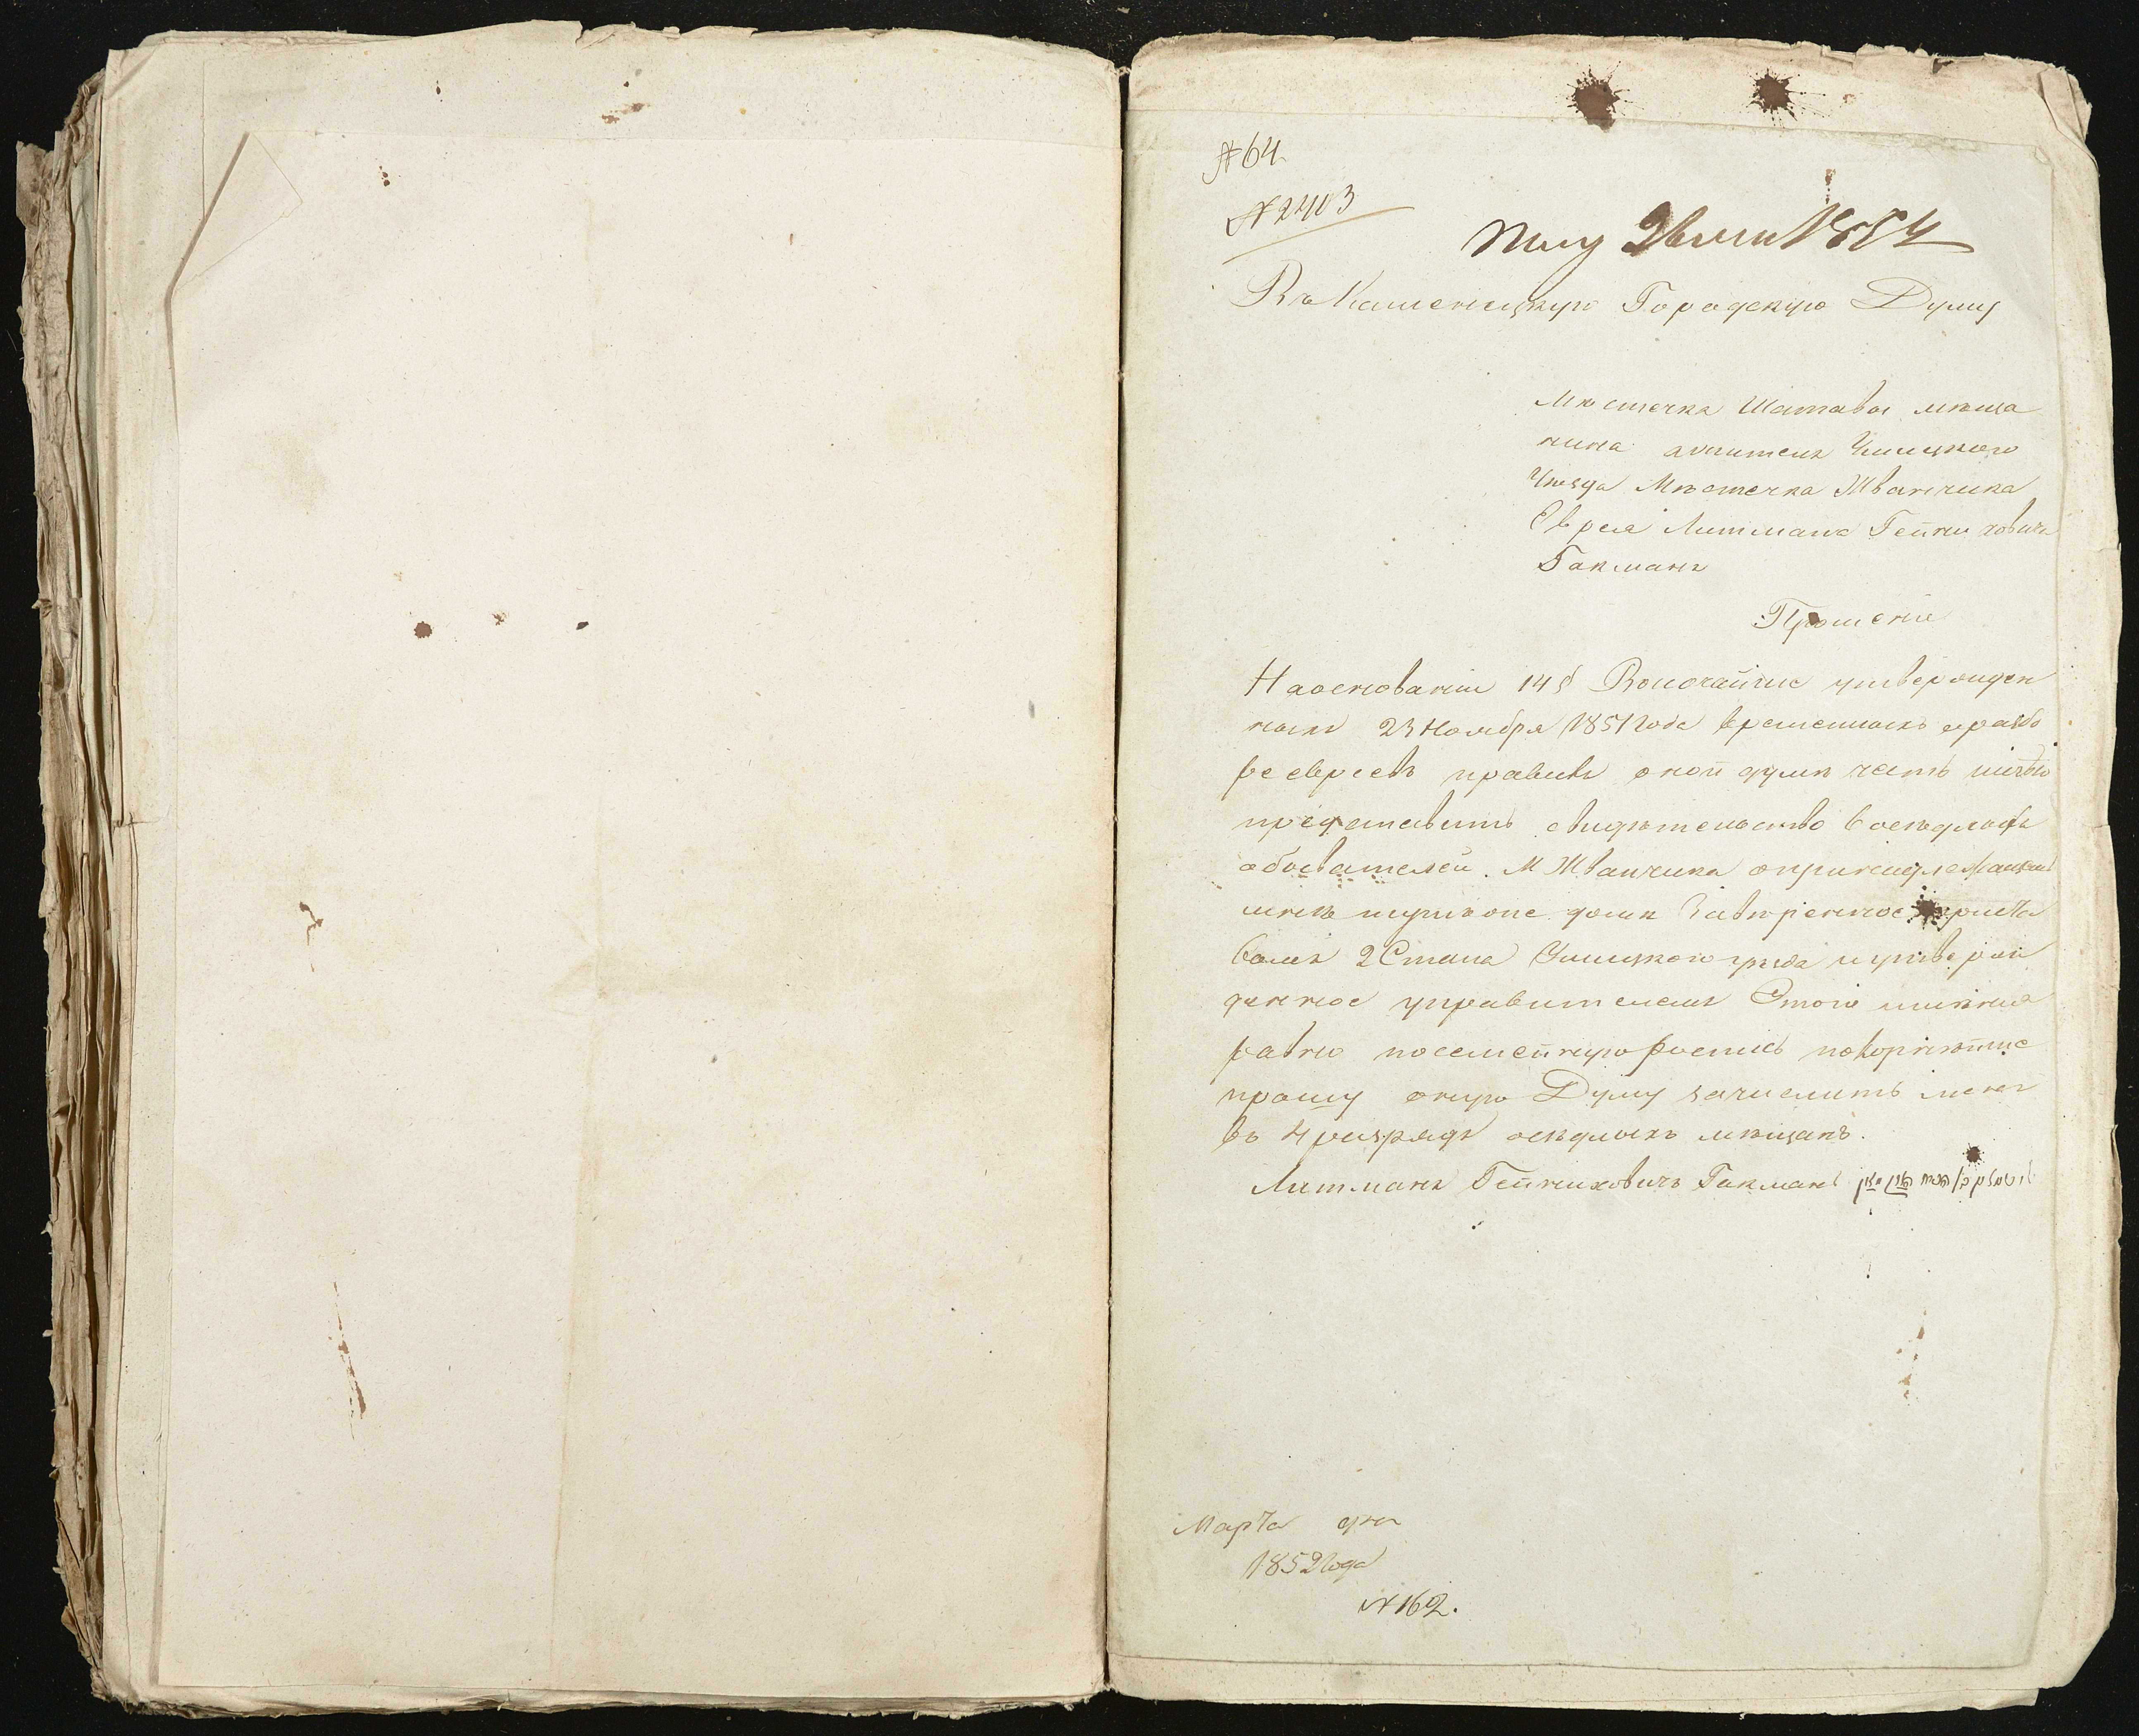 № 64.
№ 2403
1854
Въ Каменецкую Городскую Думу
Мѣстечка Шатавы мѣща
нина жителя Ушицкого
Уѣзда Мѣстечка Жванчика
Еврея Литмана Гейниховича
Гакмана
Прошеніе
На основаніи 14 § Высочайше утвержден
ныхъ 23 Ноября 1851 года временныхъ о разбо
ре евреевъ правилъ оной думѣ честь имѣю
представить свидѣтельство 6 осѣдлыхъ
обывателей М Жванчика о принадлежащемъ
мнѣ домѣ завѣренное приста
вомъ 2 Стана Ушицкого уѣзда и утверж
денное управителемъ Этого имѣнія
равно посемейную роспись покорнѣйше
прошу оную Думу зачислить меня
въ 4 разрядъ осѣдлыхъ мѣщанъ.
Литманъ Гейниховичъ Гакманъ
Марта дня
1852 года
№ 162.